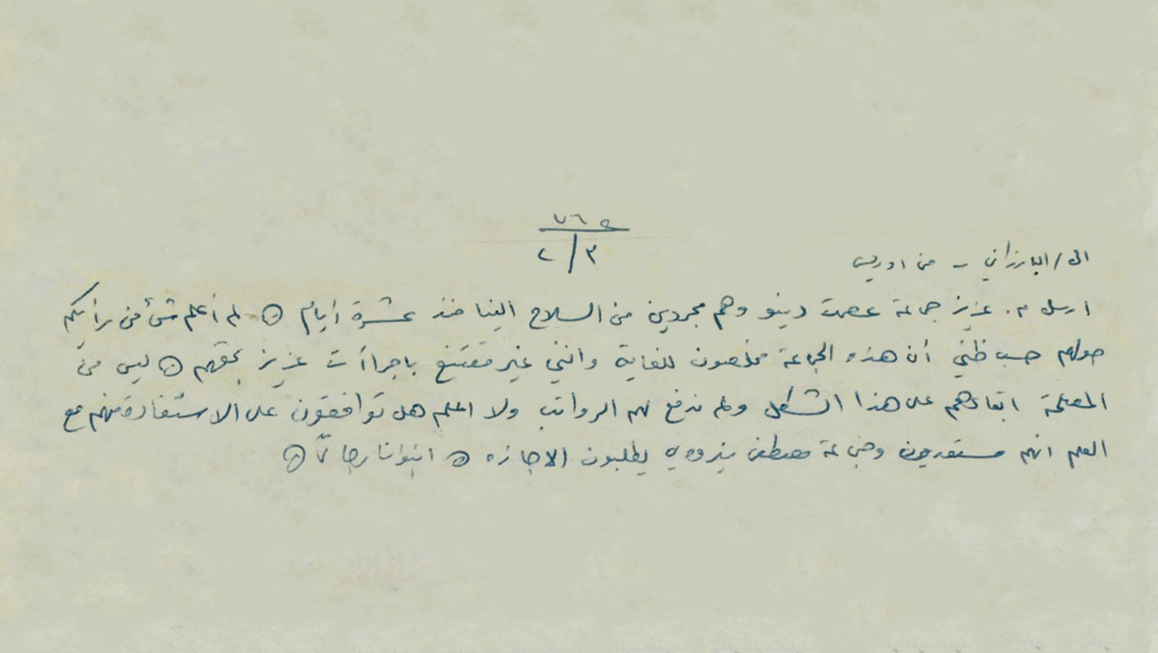 ٧٦٥
٢/٣
الى/البارزاني - من ادريس
ارسل م. عزيز جماعة عصمت دينو وهم مجردين من السلاح الينا منذ عشرة ايام ⊙ لم أعلم شئ من رأيكم
حولهم حسب ظني أن هذه الجماعة مخلصون للغاية وانني غير مقتنع باجراأت عزيز بحقهم ⊙ ليس من
المصلحة ابقاءهم على هذا الشكل ولم ندفع لهم الرواتب ولا اعلم هل توافقون على الاستفادة منهم مع
العلم انهم مستعدون وجماعة مصطفى يطلبون الاجازه ⊙ انبؤنا رجاءً ⊙